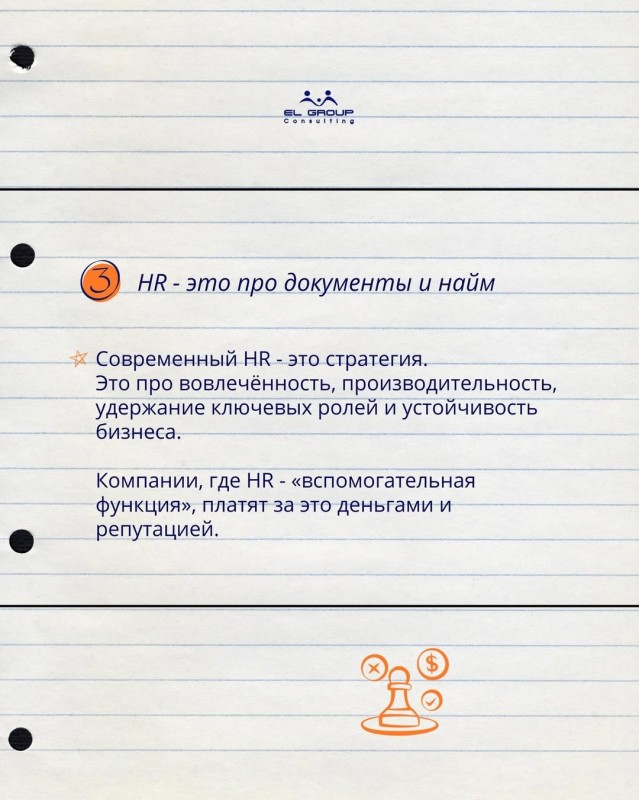 EL GROUP
Consulting
3
HR - это про документы и найм
Современный HR - это стратегия.
Это про вовлечённость, производительность,
удержание ключевых ролей и устойчивость
бизнеса.
Компании, где HR - «вспомогательная
функция», платят за это деньгами и
репутацией.
$